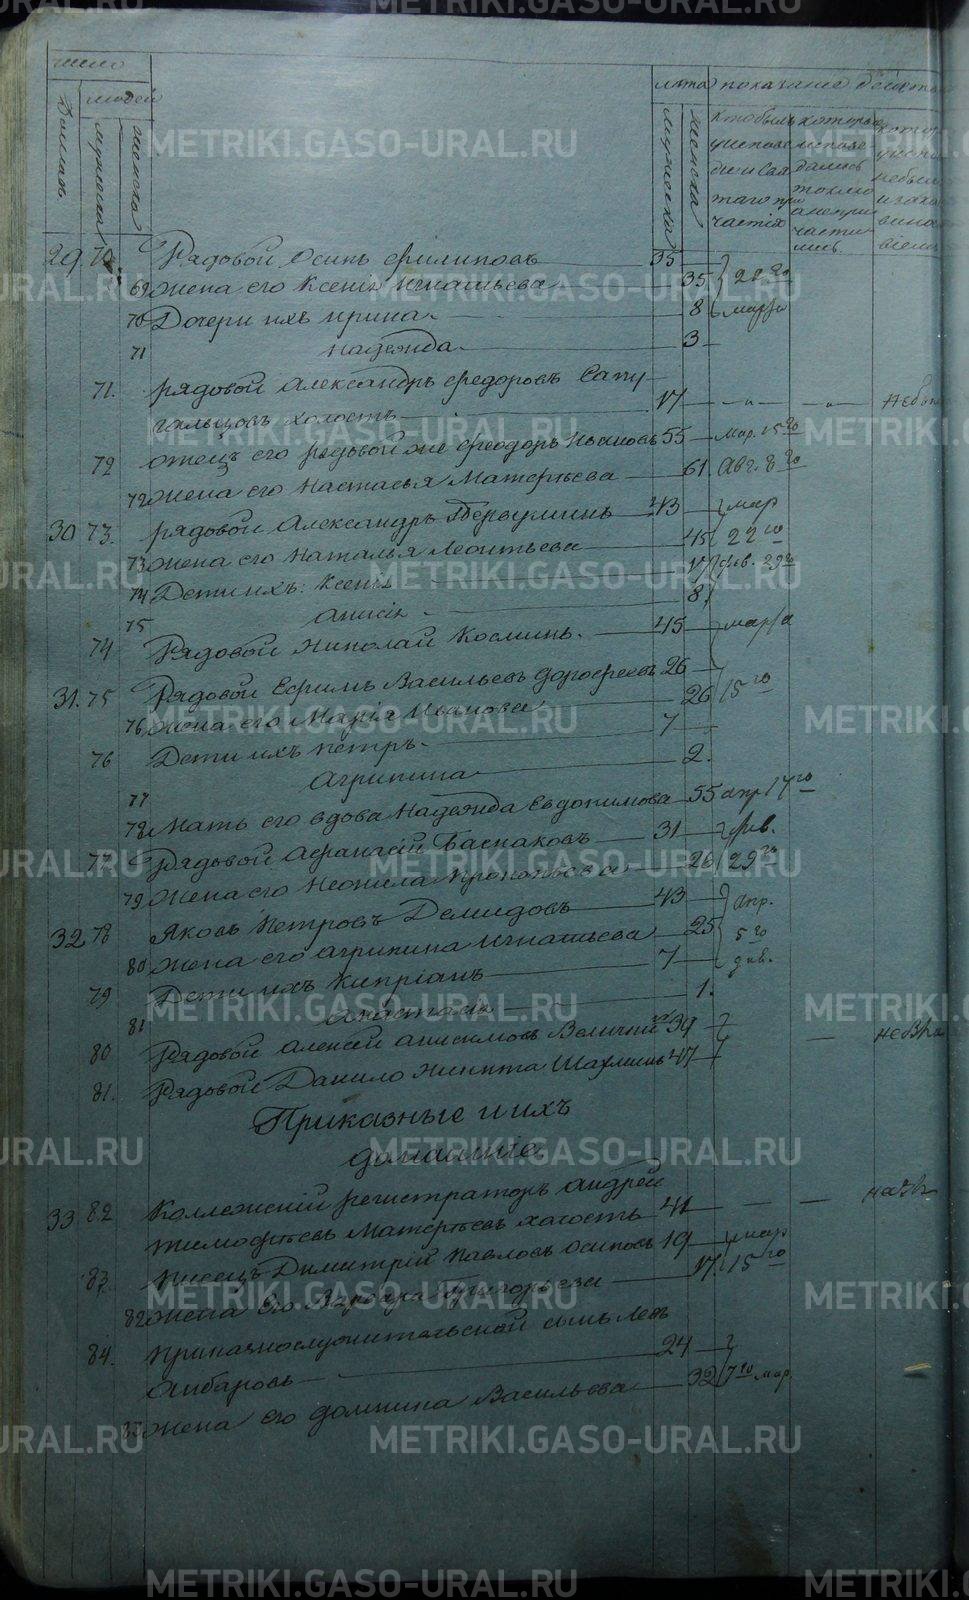 число
Домовъ
людей
мужеска
женска
лѣта
мужеска
женска
показанiе бытiя
кто былъ
у исповѣ
ди и свя
таго при
частiя
которые
исповѣ
дались
токмо
а не при
части
лись
29 70 Рядовой Осипъ Филиповъ 35
69 жена его Ксенiя Игнатьева 35 22го
70 Дочери ихъ Ирина 8 марта
71 Надежда 3
71. рядовой Александръ Федоровъ Сапу
гальцовъ холостъ 17
72 отецъ его рядовой же Феодоръ Ивановъ 55 Мар. 15го
72 жена его Настасья Матвѣева 61. Авг. 8го
30 73. рядовой Александръ Первушинъ 43 мар
73 жена его Наталья Леонтьева 45 22го
74 Дети ихъ: Ксенiя 17 фев. 29го
75 Анисiя 8
74 Рядовой Николай Косминъ. 45 марта
31. 75 Рядовой Ефимъ Васильевъ Дорофеевъ 26
76 жена его Марiя Иванова 26 15го
76 Дети ихъ Петръ. 7
77 Агрипина 2.
78 Мать его вдова Надежда Евдокимова 55 апр 17го
77 Рядовой Афанасiй Баснаковъ 31 фев.
79 жена его Неонила Прокопьева 26 29го
32 78 Яковъ Петровъ Демидовъ 43 апр.
80 жена его Агрипина Игнатьева 25 5го
79 Дети ихъ Кипрiанъ 7 фев.
81 Анастасiя 1.
80 Рядовой Алексей Анисимовъ 39
81. Рядовой Данило Никита 47
Приказные и ихъ
домашнiе
33 82 Коллежскiй регистраторъ Андрей
Тимофѣевъ Матвѣевъ холостъ 41
83. Писецъ Димитрiй Павловъ Осиповъ 19 мар
82 жена Его Варвара Григорьева 17. 15го
84. Приказнослужительскiй сынъ Левъ
Анбаровъ 24
83 жена его Домнина Васильева 32 7го мар.